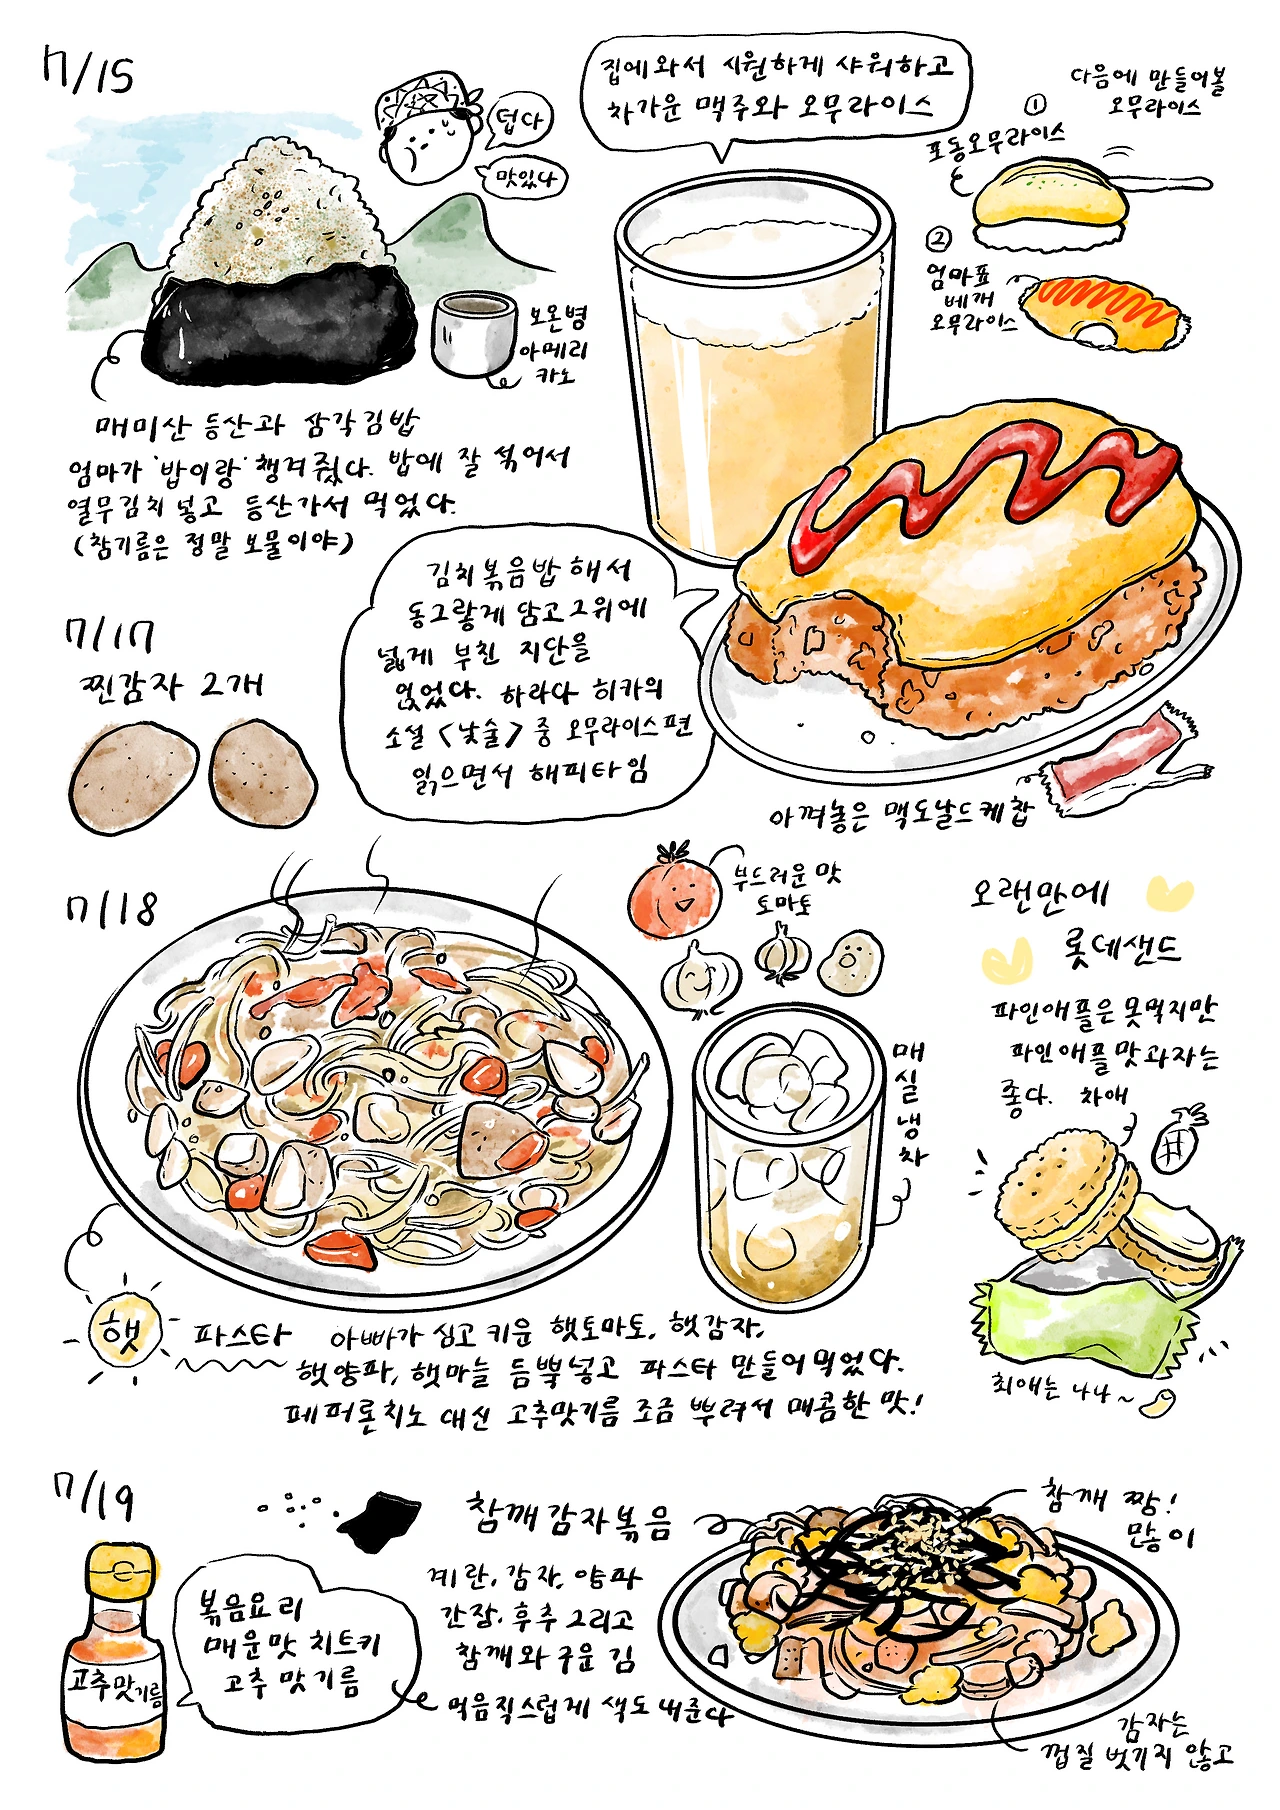 7/15
덥다
맛있다
보온병
아메리
카노
매미산 등산과 삼각김밥
엄마가 '밥이랑' 챙겨줬다. 밥에 잘 섞어서
열무김치 넣고 등산가서 먹었다.
(참기름은 정말 보물이야)
집에와서 시원하게 샤워하고
차가운 맥주와 오무라이스
다음에 만들어볼
오무라이스
①
포동오무라이스
②
엄마표
베개
오무라이스
김치볶음밥 해서
동그랗게 담고 그위에
넓게 부친 지단을
얹었다. 하라다 히카의
소설 <낮술> 중 오무라이스편
읽으면서 해피타임
아껴놓은 맥도날드케찹
7/17
찐감자 2개
7/18
부드러운 맛
토마토
매
실
냉
차
햇 파스타 아빠가 심고 키운 햇토마토, 햇감자,
햇양파, 햇마늘 듬뿍넣고 파스타 만들어먹었다.
페퍼론치노 대신 고추맛기름 조금 뿌려서 매콤한 맛!
오랜만에
롯데샌드
파인애플은 못먹지만
파인애플맛과자는
좋다. 차애
최애는 바나나~
7/19
고추맛기름
볶음요리
매운맛 치트키
고추맛기름
참깨감자볶음
계란, 감자, 양파
간장, 후추 그리고
참깨와 구운 김
먹음직스럽게 색도 내준다
참깨 짱!
많이
감자는
껍질 벗기지 않고